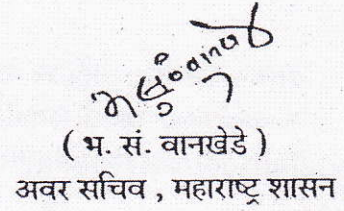 ( भ. सं. वानखेडे )
अवर सचिव , महाराष्ट्र शासन